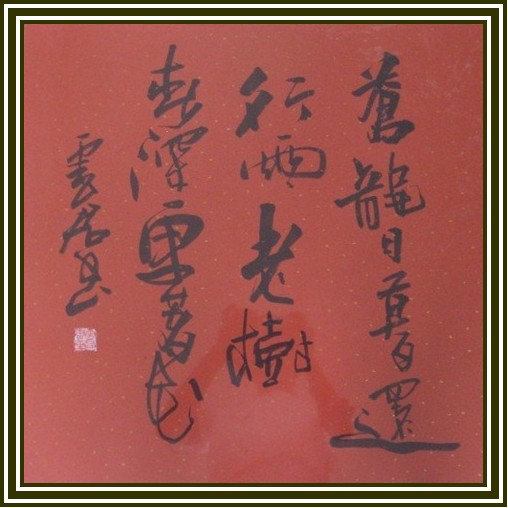 蒼龍日暮還
行雨老樹
春深更著花
雲